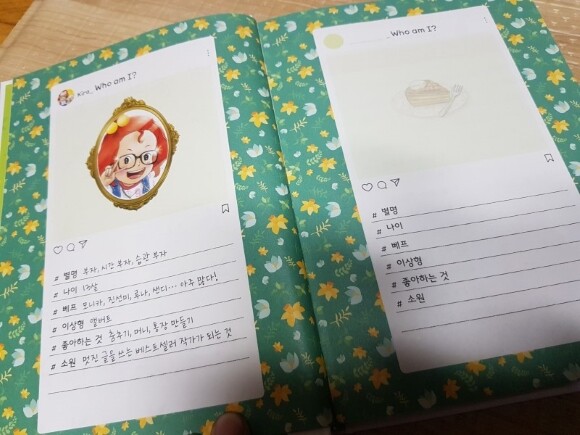 Kira_ Who am I?
# 별명 부자, 시간 부자, 습관 부자
# 나이 13살
# 베프 모니카, 진성미, 루나, 샌디··· 아주 많다!
# 이상형 앨버트
# 좋아하는 것 춤추기, 머니, 통장 만들기
# 소원 멋진 글을 쓰는 베스트셀러 작가가 되는 것
_Who am I?
# 별명
# 나이
# 베프
# 이상형
# 좋아하는 것
# 소원